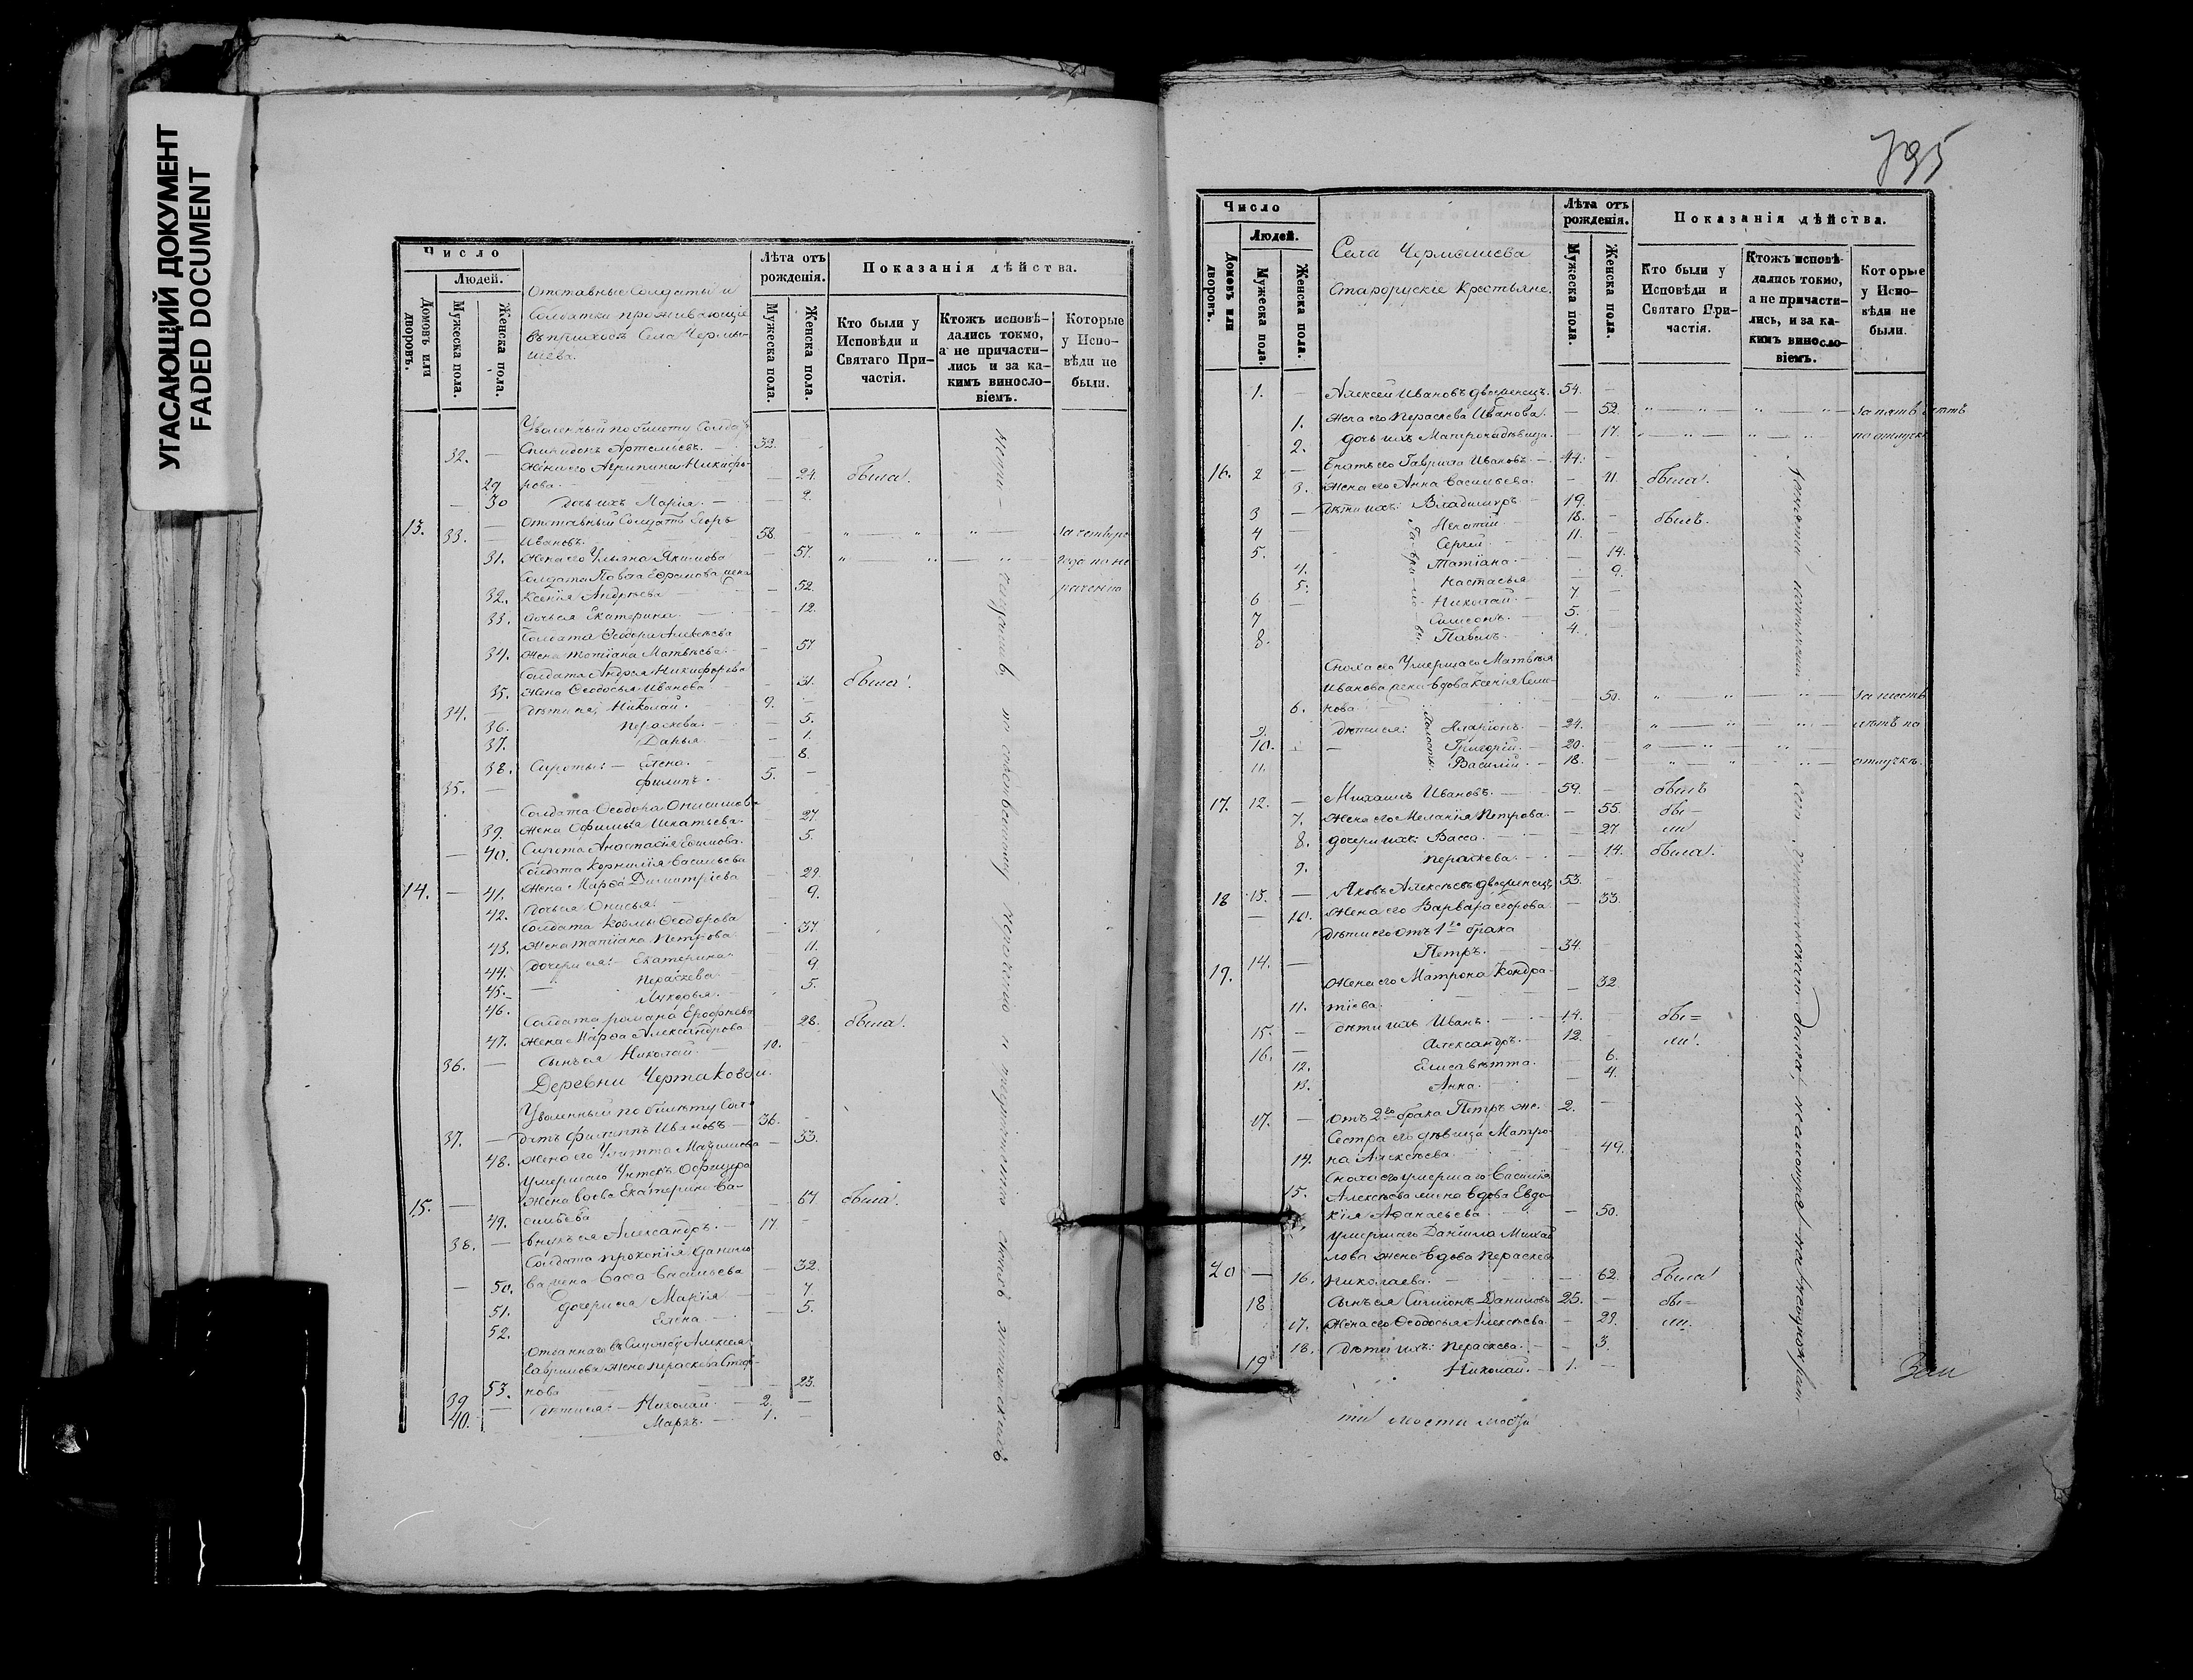 УГАСАЮЩИЙ ДОКУМЕНТ
FADED DOCUMENT
Число
Людей.
Домовъ или дворовъ.
Мужеска пола.
Женска пола.
Отставные Солдаты и
Солдатки проживающіе
въ приходѣ Села Чермы-
шева.
Лѣта отъ рожденія.
Мужеска пола.
Женска пола.
Показанія дѣйства.
Кто были у Исповѣди и Святаго Причастія.
Ктожъ исповѣдались токмо, а не причастились и за какимъ винословіемъ.
Которые у Исповѣди не были.
Уволенный по билету Солда
32. — Спиридонъ Артемьевъ. — 33.
Жена его Агрипина Никифо-
29 рова. — 24. была.
30 Дочь ихъ Марія. — 2.
Отставный Солдатъ Егоръ
13. 33. — Ивановъ. 58.
31. Жена его Ульяна Якимова 57.
32. Ксенія Андрѣева 52.
33. дочь ея Екатерина. 12.
Солдата Ѳеодора Алексѣева
34. жена Татіана Матвѣева. 57
Солдата Андрея Никифорова
35. жена Ѳеодосья Иванова 31. была.
34. дѣти ея, Николай. 9.
36. Пераскева. 5.
37. Дарья. 1.
38. Сироты: — Елена. 8.
35. Филипъ. 5.
Солдата Ѳеодора Онисимова
39. жена Офимья Игнатьева. 27.
40. Сирота Анастасія Ефимова. 5.
Солдата Корнилія Васильева
14. — 41. жена Марѳа Димитріева 29.
42. дочь ея Онисья. 9.
Солдата Козьмы Ѳеодорова
43. жена Татіана Петрова 37
44. дочери ея: Екатерина 11.
45. Пераскева 9
46. Лукерья. 5.
Солдата Романа Ерофѣева
47. жена Марѳа Александрова 28. была.
36. — сынъ ея Николай. 10.
Деревни Чертаковой.
Уволенный по билету Сол-
37. — датъ Филиппъ Ивановъ 36.
48. жена его Улитта Максимова 33.
умершаго Унтеръ Офицера
15. — жена вдова Екатерина Ва-
49. сильева 67 была.
38. — внукъ ея Александръ. 17
Солдата Прокопія Данило
— 50. ва жена Васса Васильева 32.
51. дочери ея Марія 7
52. Елена. 5.
Отданнаго въ службу Алексея
Гаврилова жена Пераскева Стефа
53. нова 23.
39 — дѣти ея: — Николай. 2. —
40. Маркъ. 1.
795
Число
Людей.
Домовъ или дворовъ.
Мужеска пола.
Женска пола.
Села Чермышева
Старорускіе Крестьяне.
Лѣта отъ рожденія.
Мужеска пола.
Женска пола.
Показанія дѣйства.
Кто были у Исповѣди и Святаго Причастія.
Ктожъ исповѣдались токмо, а не причастились, и за какимъ винословіемъ.
Которые у Исповѣди не были.
1. — Алексей Ивановъ двоеженецъ. 54.
1. Жена его Пераскева Иванова. 52. за пять лѣтъ
2. дочь ихъ Матрона дѣвица. 17. по отлучкѣ
16. 2 — Братъ его Гаврила Ивановъ. 44.
3. Жена его Анна Васильева. 41. была.
3 — Дѣти ихъ: Владимиръ 19.
4 18. былъ.
5. Сергѣй. 11.
4. Татіана. 14.
5. Настасья 9.
6 — Николай. 7.
7 Симеонъ. 5.
8. Павелъ. 4.
Сноха его умершаго Матвѣя
Иванова жена вдова Ксенія Семе-
6. нова 50. за шесть
9. дѣти ея: Иларіонъ 24. лѣтъ по
10. — Григорій. 20.
11. Василій. 18. отлучкѣ.
17. 12. — Михаилъ Ивановъ. 59. былъ
7. Жена его Меланія Петрова. 55. бы-
8. дочери ихъ: Васса. 27 ли
9. Пераскева. 14. была.
18 13. — Яковъ Алексѣевъ двоеженецъ 53.
— 10. Жена его Варвара Егорова. 33.
Дѣти его отъ 1го брака
19. 14. — Петръ. 34.
Жена его Матрона Кондра-
11. тіева. 32
15. — дѣти ихъ Иванъ. 14. бы=
16. — Александръ. 12. ли.
12. Елисавѣтта. 6.
13. Анна. 4.
17. — отъ 2го брака Петръ же. 2.
Сестра его дѣвица Матро-
14. на Алексѣева. 49.
Сноха его умершаго Василія
15. Алексѣева жена вдова Евдо-
кія Аѳанасьева. 50.
умершаго Даніила Михай
лова жена вдова Пераскева
20 — 16. Николаева. 62. была
18 Сынъ ея Симіонъ Даниловъ 25. бы=
17. Жена его Ѳеодосья Алексѣева 29. ли.
18. Дѣти ихъ: Пераскева. 3.
19 Николай. 1.